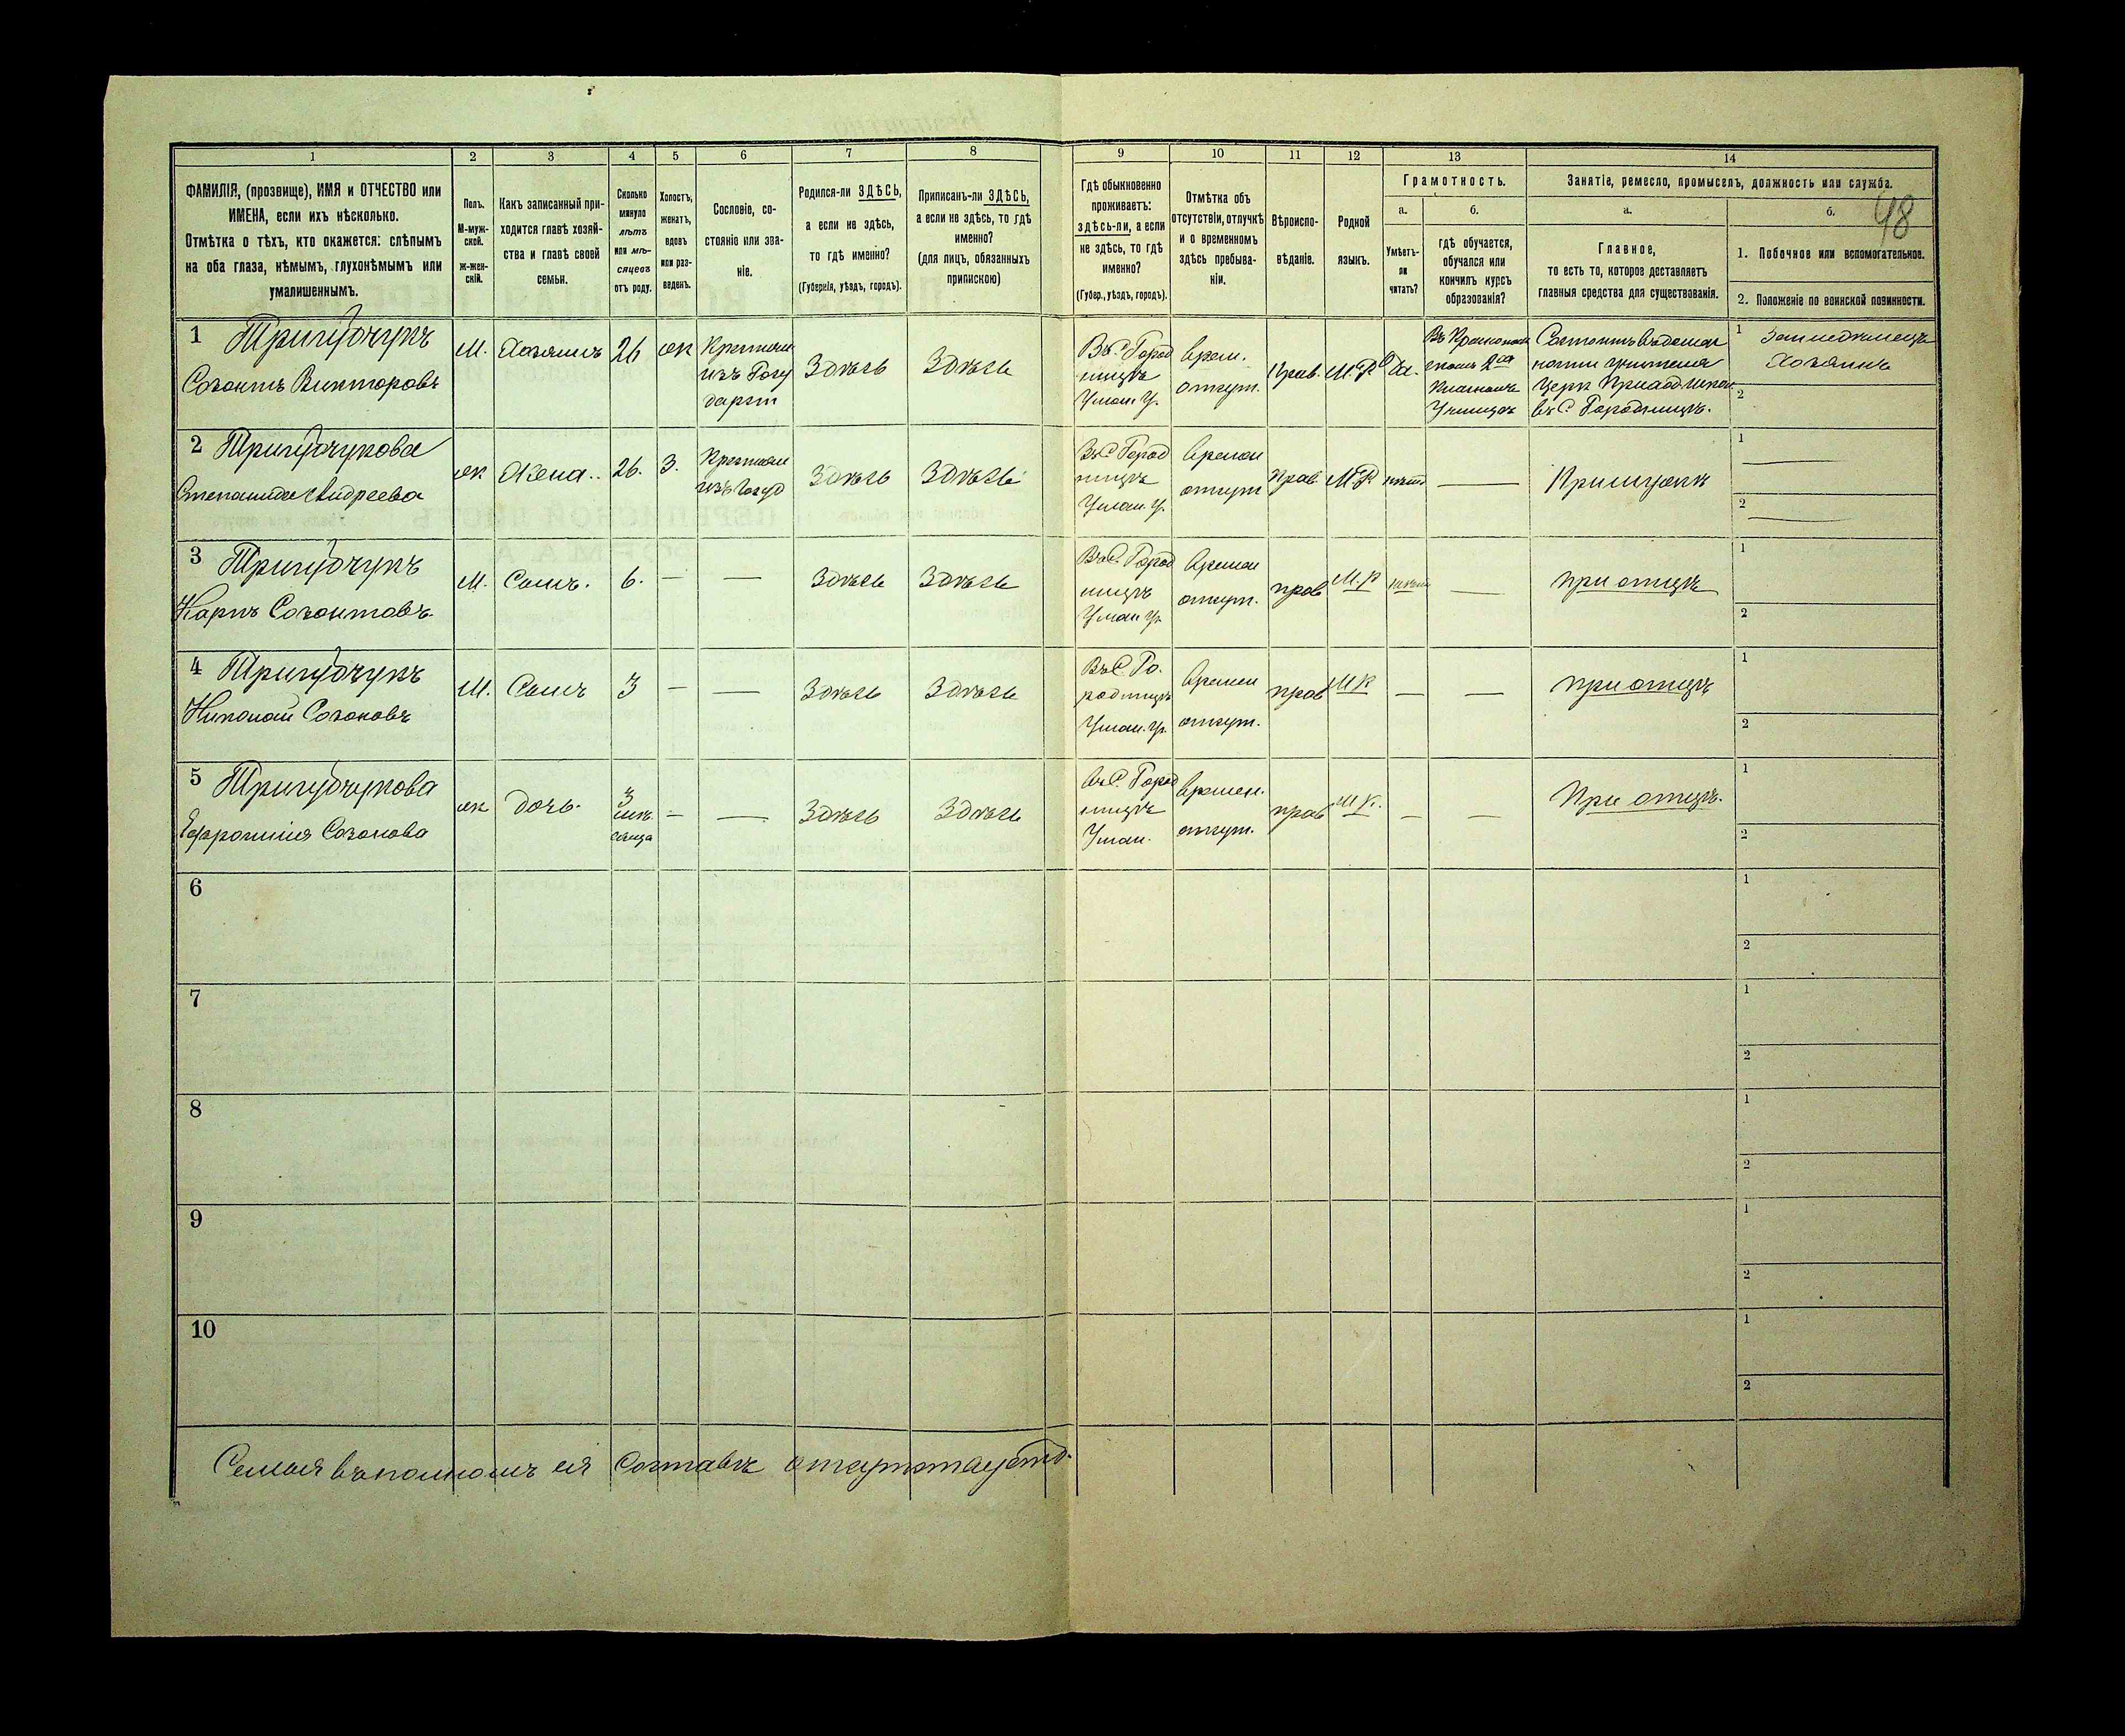 1 2 3 4 5 6 7 8 9 10 11 12 13 14
ФАМИЛІЯ, (прозвище), ИМЯ и ОТЧЕСТВО или
ИМЕНА, если ихъ нѣсколько.
Отмѣтка о тѣхъ, кто окажется: слѣпымъ
на оба глаза, нѣмымъ, глухонѣмымъ или
умалишеннымъ.
Полъ.
М-муж-
ской.
ж-жен-
скій.
Какъ записанный при-
ходится главѣ хозяй-
ства и главѣ своей
семьи.
Сколько
минуло
лѣтъ
или мѣ-
сяцевъ
отъ роду.
Холостъ,
женатъ,
вдовъ
или раз-
веденъ.
Сословіе, со-
стояніе или зва-
ніе.
Родился-ли ЗДѢСЬ,
а если не здѣсь,
то гдѣ именно?
(Губернія, уѣздъ, городъ).
Приписанъ-ли ЗДѢСЬ,
а если не здѣсь, то гдѣ
именно?
(для лицъ, обязанныхъ
припискою)
Гдѣ обыкновенно
проживаетъ:
здѣсь-ли, а если
не здѣсь, то гдѣ
именно?
(Губер., уѣздъ, городъ).
Отмѣтка объ
отсутствіи, отлучкѣ
и о временномъ
здѣсь пребыва-
ніи.
Вѣроиспо-
вѣданіе.
Родной
языкъ.
Грамотность.
а.
Умѣетъ-
ли
читать?
б.
гдѣ обучается,
обучался или
кончилъ курсъ
образованія?
Занятіе, ремесло, промыселъ, должность или служба.
а.
Главное,
то есть то, которое доставляетъ
главныя средства для существованія.
б.
48
1. Побочное или вспомогательное.
2. Положеніе по воинской повинности.
1 Тригубчукъ
Созонтъ Викторовъ
М.
Хозяинъ
26
жк
Крестьян
изъ Госу
дарст
Здѣсь
Здѣсь
Въ С. Город
ницѣ
Уман. У.
Врем.
отсут.
Прав.
М. Р.
Да.
2хъ
Классномъ
Училищѣ
Состоитъ въ должн
ности учителя
Церк Приход школ
въ С. Городницѣ.
1 Земледѣлецъ
Хозяинъ
2
2 Тригубчукова
Степанида Андреева
жк
Жена.
26.
З.
Крестьян
изъ Госуд
Здѣсь
Здѣсь
Въ С. Город
ницѣ
Уман. У.
Времен
отсут
Прав
М Р
нѣтъ
—
1
2
3 Тригубчукъ
Карпъ Созонтовъ.
М.
Сынъ.
6.
—
—
Здѣсь
Здѣсь
Въ С. Город
ницѣ
Уман У.
Времен
отсут.
прав
М. р
нѣтъ
—
при отцѣ
1
2
4 Тригубчукъ
Николай Созоновъ
М.
Сынъ
3
—
—
Здѣсь
Здѣсь
Въ С. Го.
родницѣ
Уман. У.
Времен
отсут.
прав
М Р
—
—
при отцѣ
1
2
5 Тригубчукова
Ефросинія Созонова
жк
дочь.
3
мѣ
сяца
—
—
Здѣсь
Здѣсь
Въ С. Город
ницѣ
Уман.
Времен.
отсут.
прав
М Р.
—
—
При отцѣ.
1
2
6
1
2
7
1
2
8
1
2
9
1
2
10
1
2
Семья въ полномъ ея составѣ отсутствуетъ.